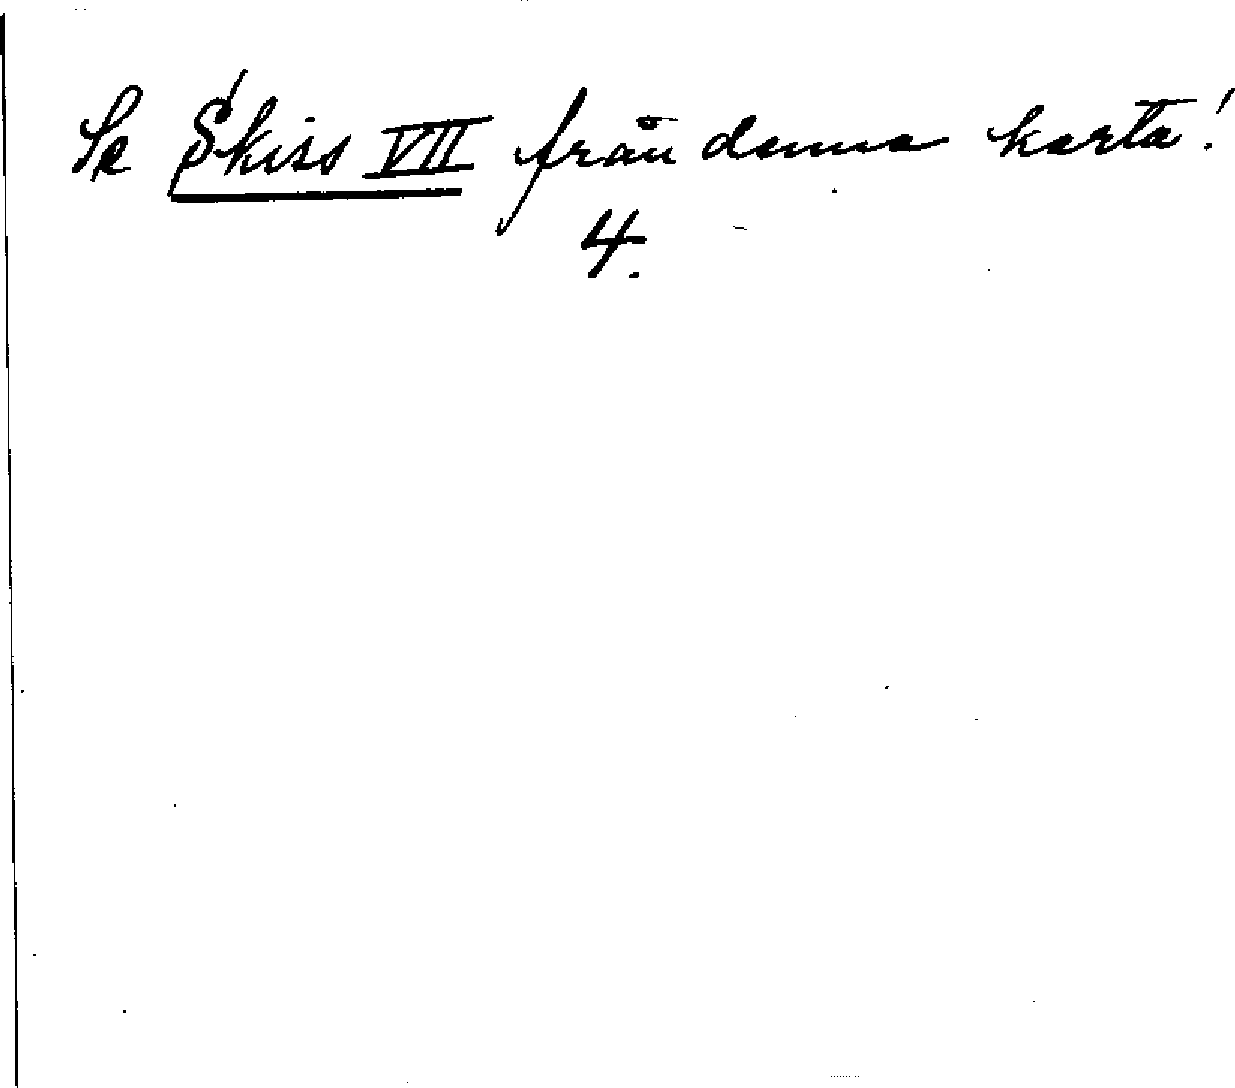 Se Skiss VII från denna karta!
4.